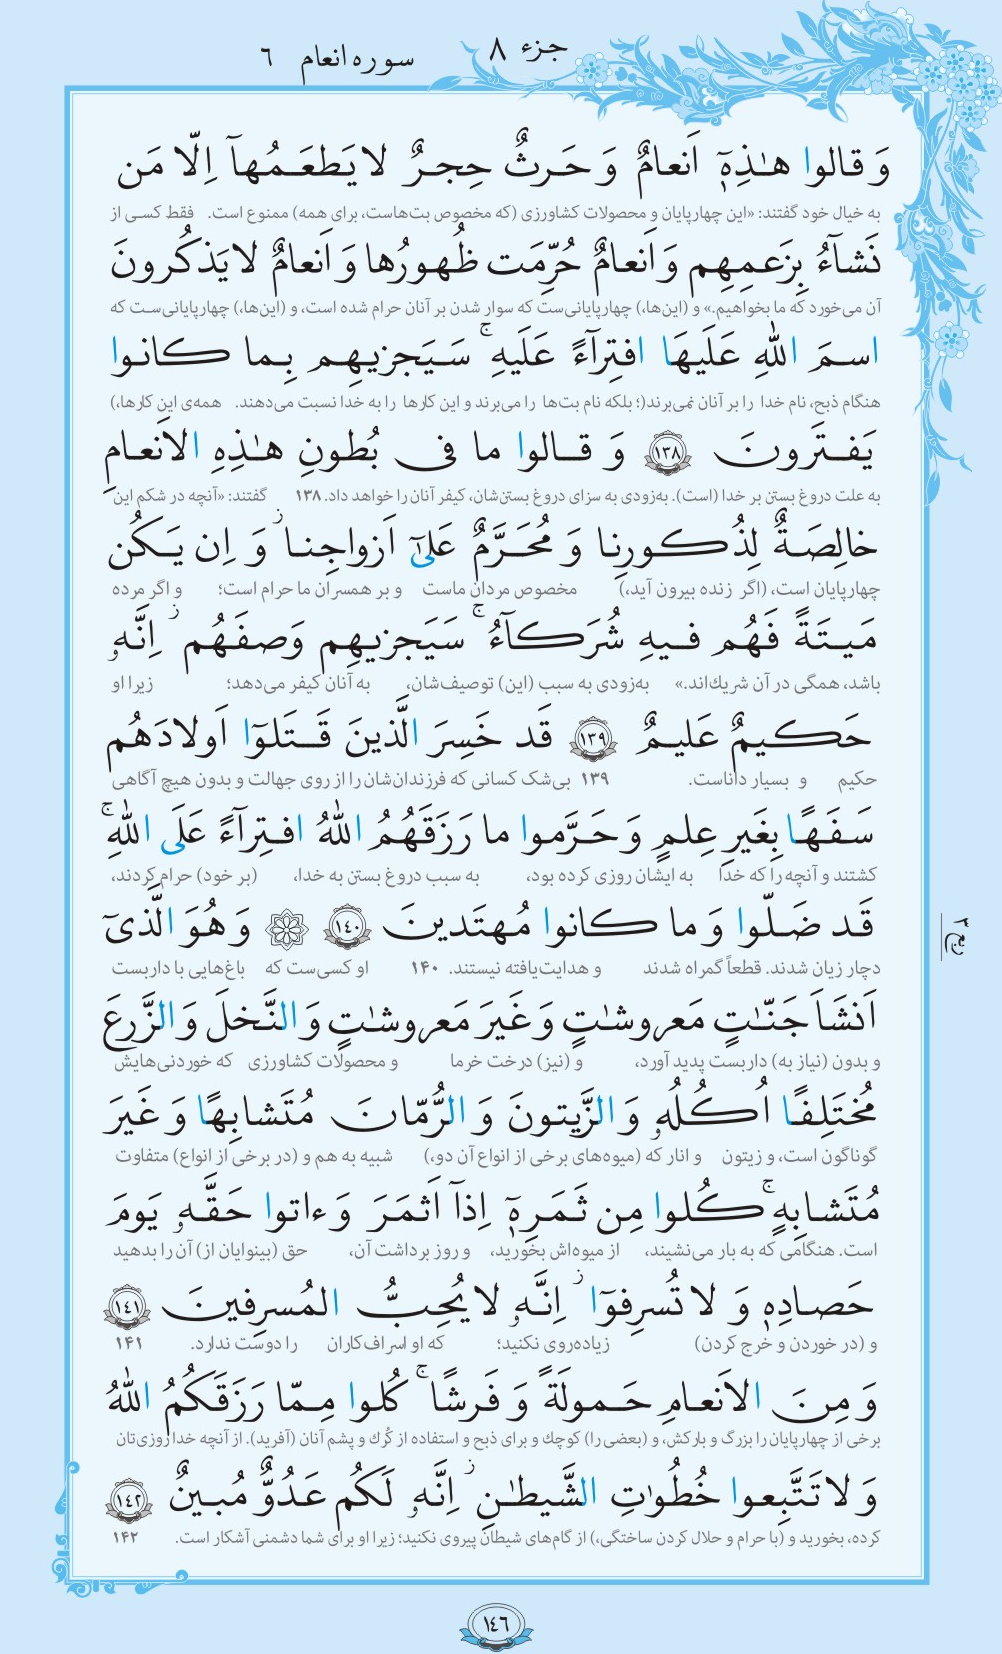 جزء ۸
سوره انعام ۶
وَ قالوا هٰذِهٖٓ اَنعامٌ وَ حَرثٌ حِجرٌ لا يَطعَمُهآ اِلّا مَن
به خیال خود گفتند: «این چهارپایان و محصولات کشاورزی (که مخصوص بت‌هاست، برای همه) ممنوع است. فقط کسی از
نَشآءُ بِزَعمِهِم وَ اَنعامٌ حُرِّمَت ظُهورُها وَ اَنعامٌ لا يَذكُرونَ
آن می‌خورد که ما بخواهیم.» و (این‌ها،) چهارپایانی‌ست که سوار شدن بر آنان حرام شده است، و (این‌ها،) چهارپایانی‌ست که
اسمَ اللّٰهِ عَلَيهَا افتِرآءً عَلَيهِ ۚ سَيَجزيهِم بِما كانوا
هنگام ذبح، نام خدا را بر آنان نمی‌برند(؛ بلکه نام بت‌ها را می‌برند و این کارها را به خدا نسبت می‌دهند. همه‌ی این کارها،)
يَفتَرونَ ﴿١٣٨﴾ وَ قالوا ما فى بُطونِ هٰذِهِ الاَنعامِ
به علت دروغ بستن بر خدا (است). به‌زودی به سزای دروغ بستن‌شان، کیفر آنان را خواهد داد. ۱۳۸ گفتند: «آنچه در شکم این
خالِصَةٌ لِذُكورِنا وَ مُحَرَّمٌ عَلىٰٓ اَزواجِنا ز وَ اِن يَكُن
چهارپایان است، (اگر زنده بیرون آید،) مخصوص مردان ماست و بر همسران ما حرام است؛ و اگر مرده
مَيتَةً فَهُم فيهِ شُرَكآءُ ۚ سَيَجزيهِم وَصفَهُم ز اِنَّهٗ
باشد، همگی در آن شریك‌اند.» به‌زودی به سبب (این) توصیف‌شان، به آنان کیفر می‌دهد؛ زیرا او
حَكيمٌ عَليمٌ ﴿١٣٩﴾ قَد خَسِرَ الَّذينَ قَتَلوٓا اَولادَهُم
حکیم و بسیار داناست. ۱۳۹ بی‌شک کسانی که فرزندان‌شان را از روی جهالت و بدون هیچ آگاهی
سَفَهًا بِغَيرِ عِلمٍ وَ حَرَّموا ما رَزَقَهُمُ اللّٰهُ افتِرآءً عَلَى اللّٰهِ ۚ
کشتند و آنچه را که خدا به ایشان روزی کرده بود، به سبب دروغ بستن به خدا، (بر خود) حرام کردند،
قَد ضَلّوا وَ ما كانوا مُهتَدينَ ﴿١٤٠﴾ وَ هُوَ الَّذىٓ
دچار زیان شدند. قطعاً گمراه شدند و هدایت‌یافته نیستند. ۱۴۰ او کسی‌ست که باغ‌هایی با داربست
ربع ٣
اَنشَاَ جَنّٰتٍ مَعروشٰتٍ وَ غَيرَ مَعروشٰتٍ وَ النَّخلَ وَ الزَّرعَ
و بدون (نیاز به) داربست پدید آورد، و (نیز) درخت خرما و محصولات کشاورزی که خوردنی‌هایش
مُختَلِفًا اُكُلُهٗ وَ الزَّيتونَ وَ الرُّمّانَ مُتَشابِهًا وَ غَيرَ
گوناگون است، و زیتون و انار که (میوه‌های برخی از انواع آن دو،) شبیه به هم و (در برخی از انواع) متفاوت
مُتَشابِهٍ ۚ كُلوا مِن ثَمَرِهٖٓ اِذآ اَثمَرَ وَ ءاتوا حَقَّهٗ يَومَ
است. هنگامی که به بار می‌نشیند، از میوه‌اش بخورید، و روز برداشت آن، حق (بینوایان از) آن را بدهید
حَصادِهٖ وَ لا تُسرِفوٓا ز اِنَّهٗ لا يُحِبُّ المُسرِفينَ ﴿١٤١﴾
و (در خوردن و خرج کردن) زیاده‌روی نکنید؛ که او اسراف‌کاران را دوست ندارد. ۱۴۱
وَ مِنَ الاَنعامِ حَمولَةً وَ فَرشًا ۚ كُلوا مِمّا رَزَقَكُمُ اللّٰهُ
برخی از چهارپایان را بزرگ و بارکش، و (بعضی را) کوچك و برای ذبح و استفاده از کُرك و پشم آنان (آفرید). از آنچه خدا روزی‌تان
وَ لا تَتَّبِعوا خُطُوٰتِ الشَّيطٰنِ ز اِنَّهٗ لَكُم عَدُوٌّ مُبينٌ ﴿١٤٢﴾
کرده، بخورید و (با حرام و حلال کردن ساختگی،) از گام‌های شیطان پیروی نکنید؛ زیرا او برای شما دشمنی آشکار است. ۱۴۲
١٤٦